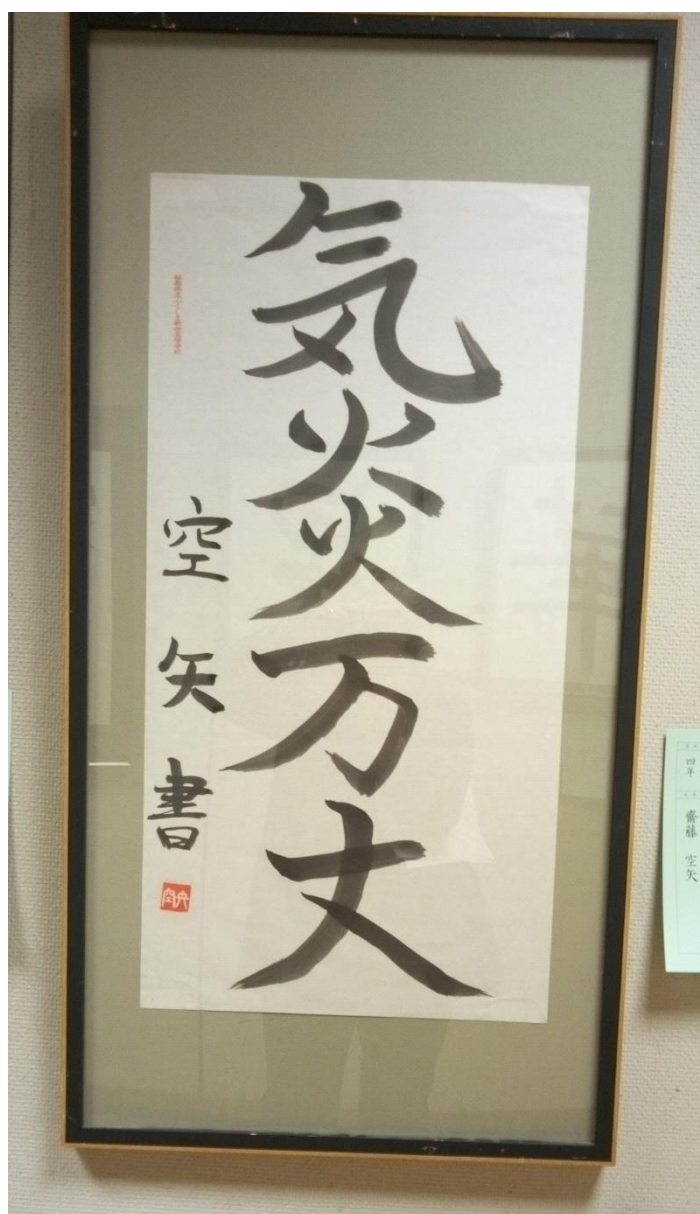 気炎万丈
空矢書
四年
齋藤 空矢